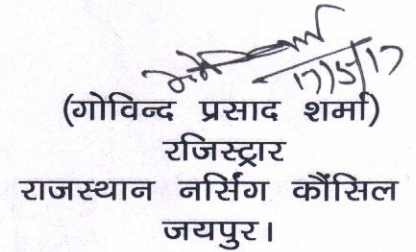 17/5/17
(गोविन्द प्रसाद शर्मा)
रजिस्ट्रार
राजस्थान नर्सिंग कौंसिल
जयपुर।